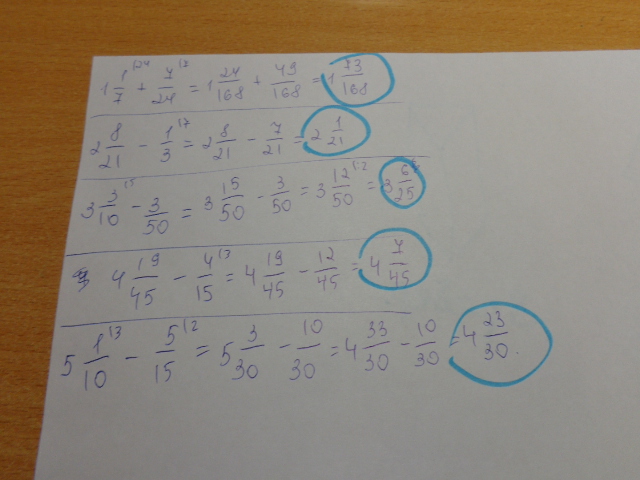 1 1/7 ^(24 + 7/24 ^(7 = 1 24/168 + 49/168 = 1 73/168
2 8/21 - 1/3 ^(7 = 2 8/21 - 7/21 = 2 1/21
3 3/10 ^(5 - 3/50 = 3 15/50 - 3/50 = 3 12/50 ^(:2 = 3 6/25
4 19/45 - 4/15 ^(3 = 4 19/45 - 12/45 = 4 7/45
5 1/10 ^(3 - 5/15 ^(2 = 5 3/30 - 10/30 = 4 33/30 - 10/30 = 4 23/30.